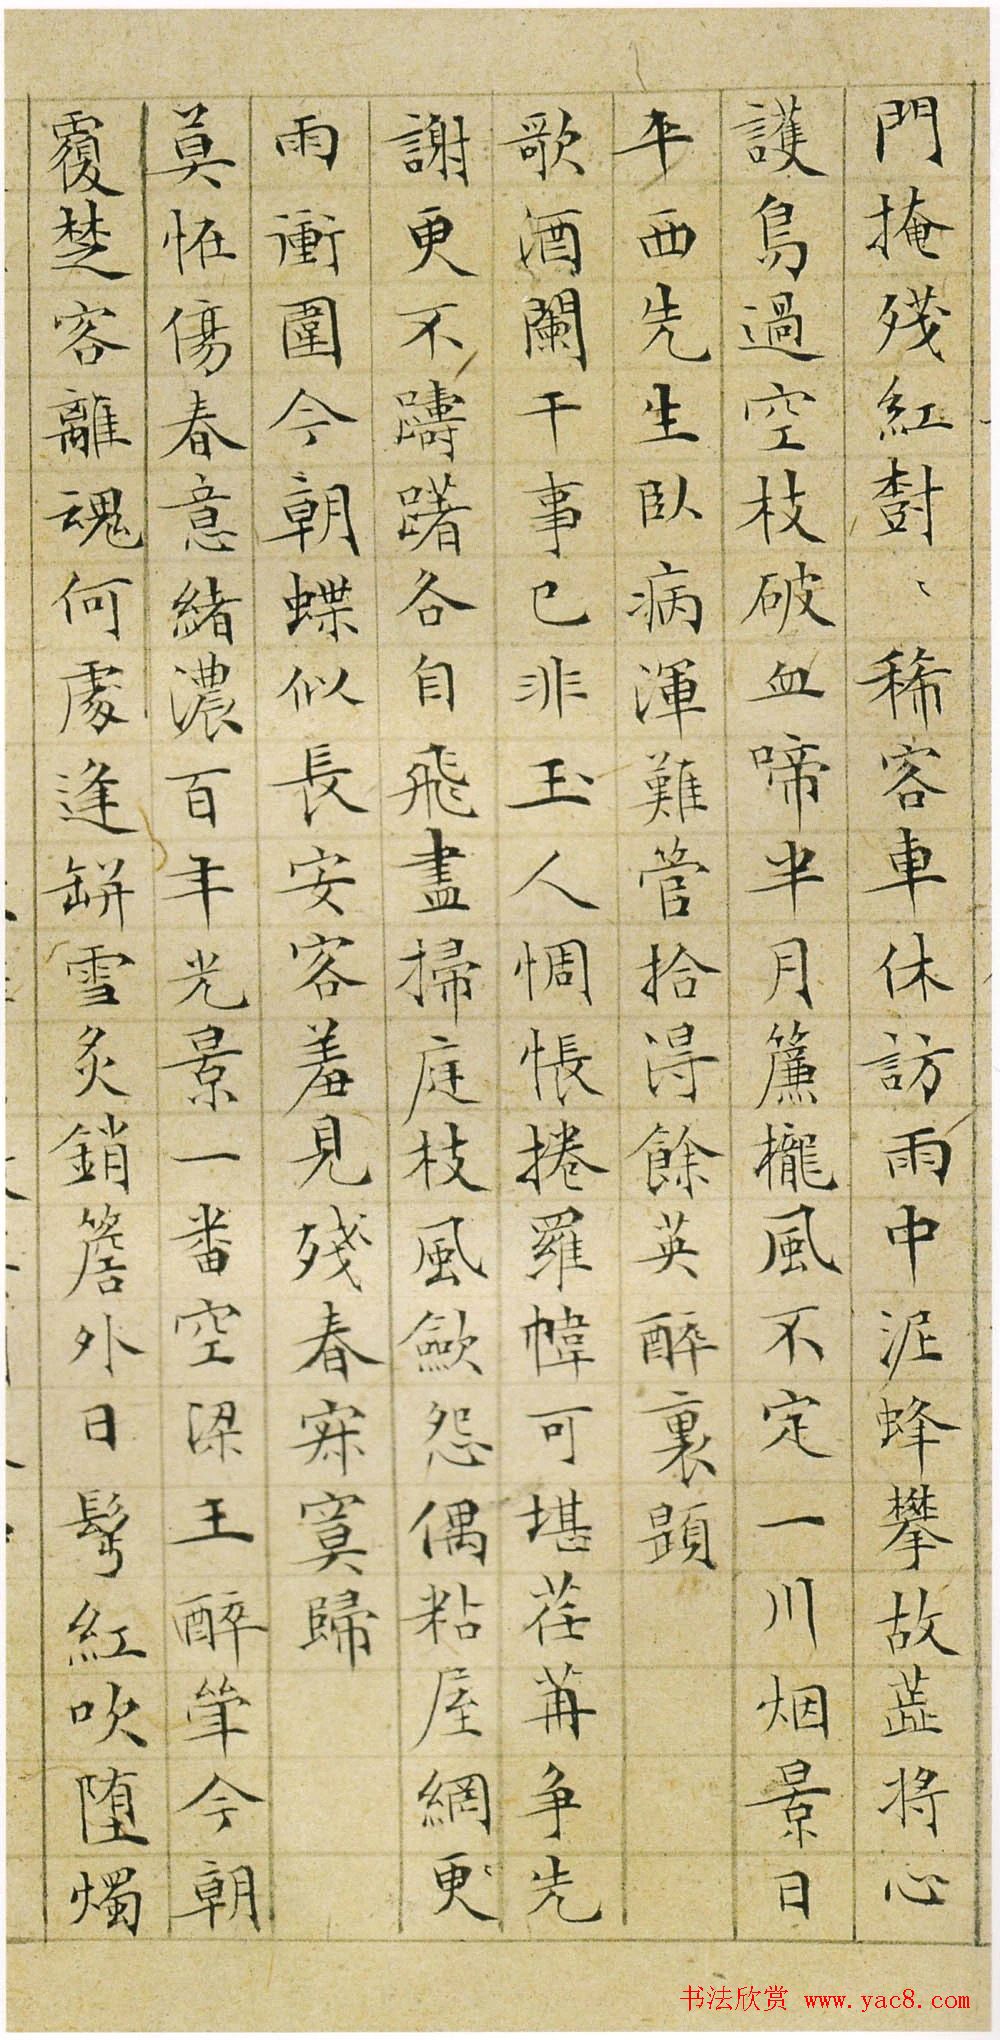 門掩殘紅樹〻稀客車休訪雨中泥蜂攀故蕋將心
護鳥過空枝破血啼半月簾櫳風不定一川烟景日
平西先生臥病渾難管拾得餘英醉裏題
歌酒闌干事已非玉人惆悵捲羅幃可堪荏苒爭先
謝更不躊躇各自飛盡掃庭枝風歛怨偶粘屋網更
雨衝圍今朝蝶似長安客羞見殘春寂寞歸
莫怪傷春意緒濃百年光景一番空梁王醉筆今朝
覆楚客離魂何處逢缾雪炙銷簷外日髩紅吹墮燭
书法欣赏 www.yac8.com